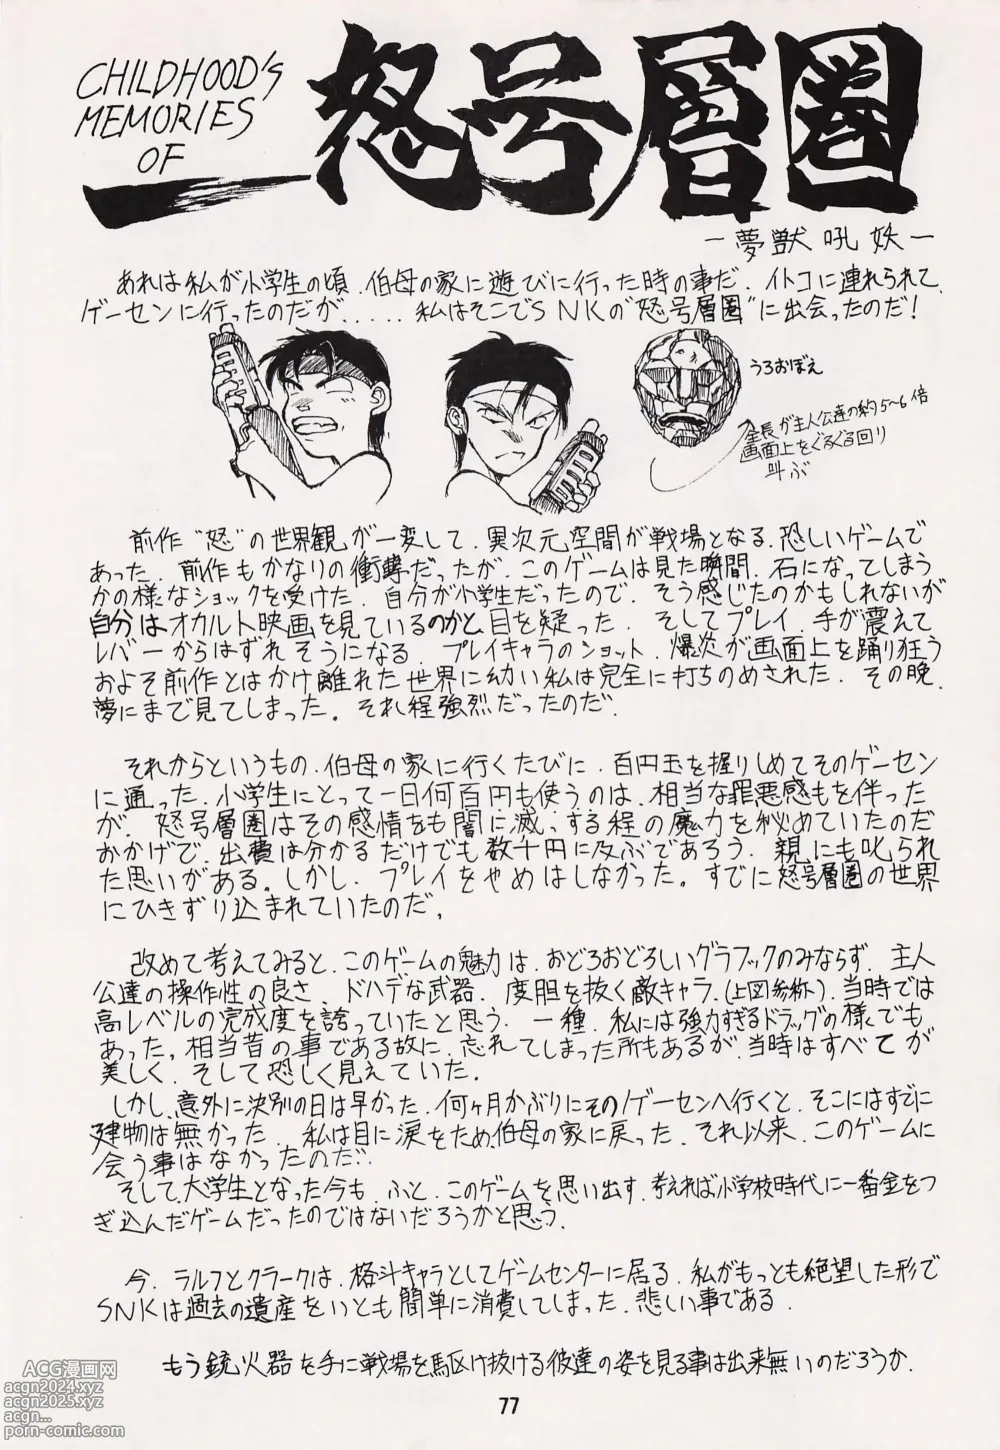 CHILDHOOD'S
MEMORIES
OF
怒号層圏
ー夢獣吼妖ー
あれは私が小学生の頃、伯母の家に遊びに行った時の事だ. イトコに連れられて、
ゲーセンに行ったのだが..... 私はそこでSNKの"怒号層圏"に出会ったのだ!
うろおぼえ
全長が主人公達の約5〜6倍
画面上をぐるぐる回り
叫ぶ
前作"怒"の世界観が一変して、異次元空間が戦場となる、恐しいゲームで
あった. 前作もかなりの衝撃だったが、このゲームは見た瞬間、石になってしまう
かの様なショックを受けた. 自分が小学生だったので、そう感じたのかもしれないが
自分はオカルト映画を見ているのかと目を疑った. そしてプレイ. 手が震えて
レバーからはずれそうになる. プレイキャラのショット、爆炎が画面上を踊り狂う
およそ前作とはかけ離れた世界に幼い私は完全に打ちのめされた. その晩、
夢にまで見てしまった。それ程強烈だったのだ.
それからというもの、伯母の家に行くたびに、百円玉を握りしめてそのゲーセン
に通った. 小学生にとって一日何百円も使うのは、相当な罪悪感もを伴った
が、怒号層圏はその感情をも闇に滅っする程の魔力を秘めていたのだ
おかげで、出費は分かるだけでも数千円に及ぶであろう. 親にも叱られ
た思いがある。しかし、プレイをやめはしなかった。すでに怒号層圏の世界
にひきずり込まれていたのだ。
改めて考えてみると、このゲームの魅力は、おどろおどろしいグラフックのみならず、主人
公達の操作性の良さ、ドハデな武器、度胆を抜く敵キャラ.(上図参称). 当時では
高レベルの完成度を誇っていたと思う. 一種、私には強力すぎるドラッグの様でも
あった。相当昔の事である故に、忘れてしまった所もあるが、当時はすべてが
美しく、そして恐しく見えていた.
しかし、意外に決別の日は早かった. 何ヶ月かぶりにそのゲーセンへ行くと、そこにはすでに
建物は無かった. 私は目に涙をため、伯母の家に戻った. それ以来、このゲームに
会う事はなかったのだ.
そして、大学生となった今も、ふと、このゲームを思い出す. 考えれば小学校時代に一番金をつ
ぎ込んだゲームだったのではないだろうかと思う.
今、ラルフとクラークは、格斗キャラとしてゲームセンターに居る. 私がもっとも絶望した形で
SNKは過去の遺産をいとも簡単に消費してしまった. 悲しい事である.
もう銃火器を手に戦場を駆け抜ける彼達の姿を見る事は出来無いのだろうか.
77
ACG漫画网
acgn2024.xyz
acgn2025.xyz
acgn...
porn-comic.com